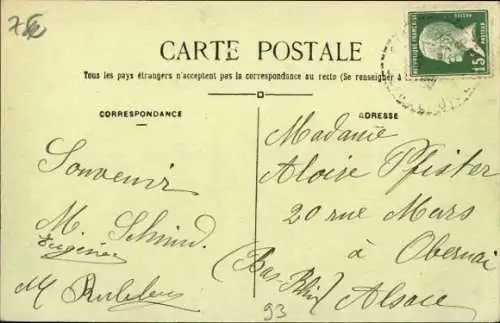 75
CARTE POSTALE
Tous les pays étrangers n'acceptent pas la correspondance au recto (Se renseigner à
CORRESPONDANCE
ADRESSE
REPUBLIQUE FRANÇAISE
POSTES
PASTEUR
15c
Souvenir
M. Schmid
Eugénie
M
Madame
Aloïse Pfister
20 rue Mars
à Obernai
(Bas-Rhin)
Alsace
93